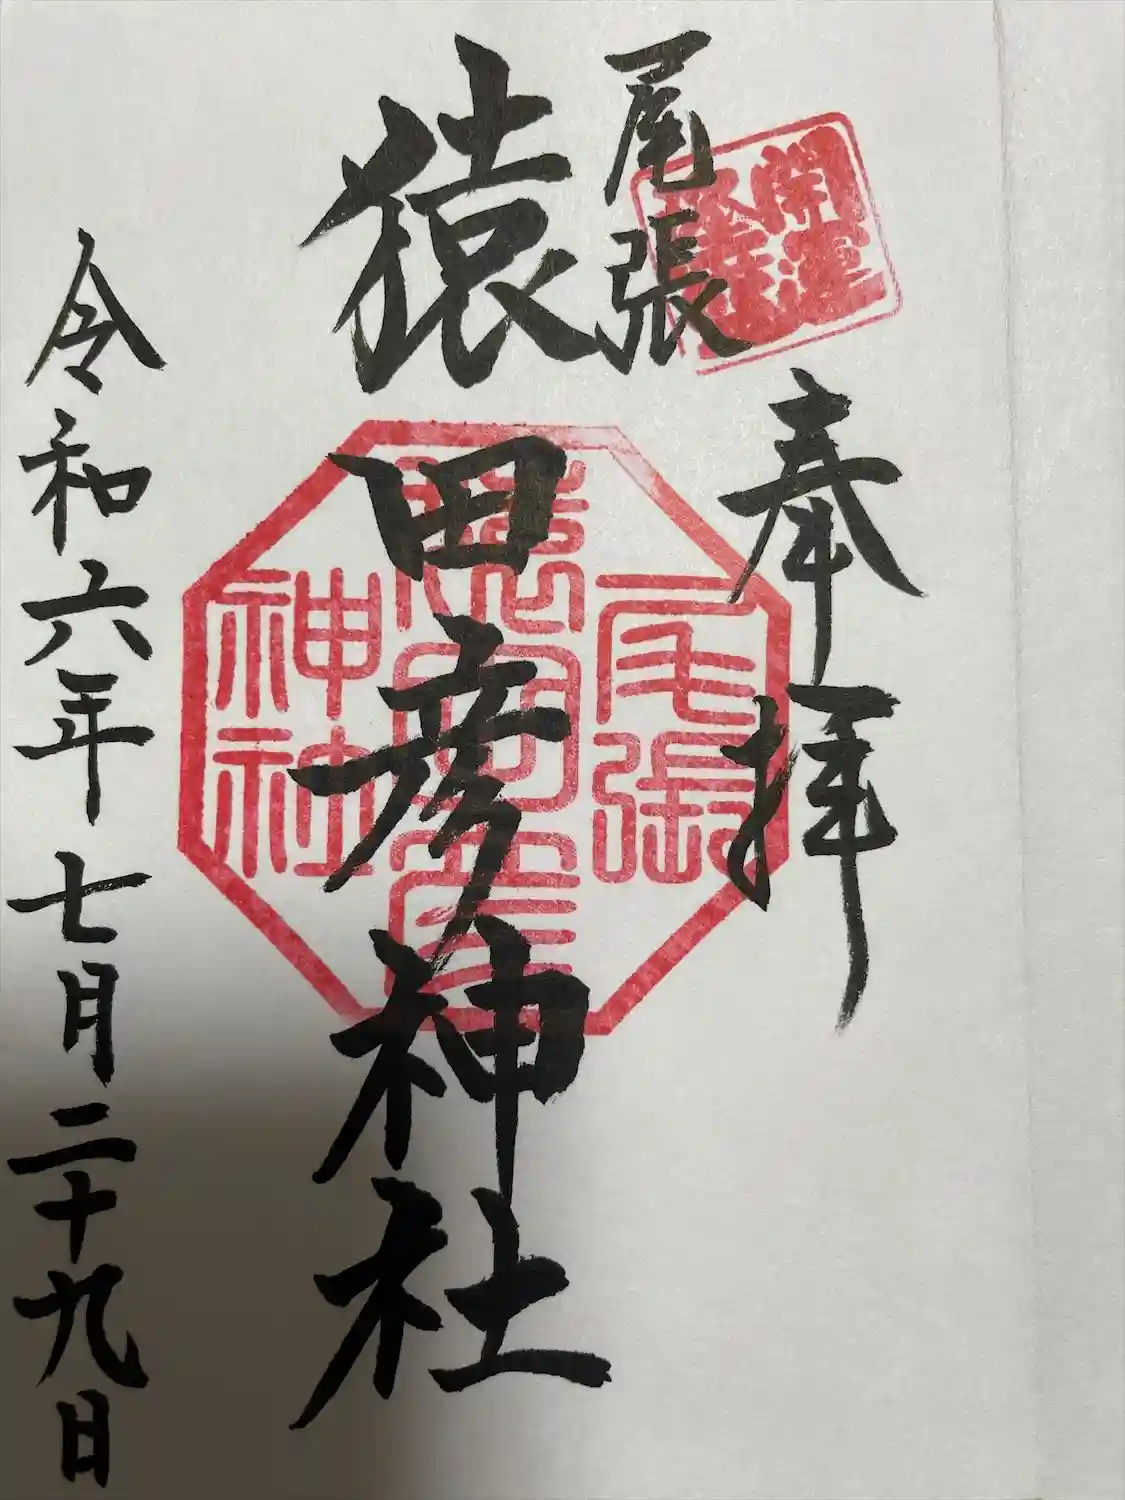 開運
奉拝
尾張
猿田彦神社
令和六年七月二十九日
尾張
神社